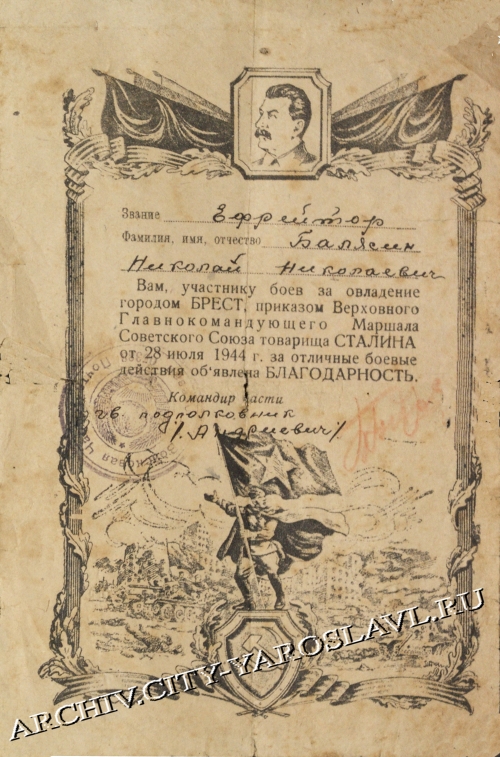 Звание Ефрейтор
Фамилия, имя, отчество Балясин
Николай Николаевич
Вам, участнику боев за овладение
городом БРЕСТ, приказом Верховного
Главнокомандующего Маршала
Советского Союза товарища СТАЛИНА
от 28 июля 1944 г. за отличные боевые
действия об'явлена БЛАГОДАРНОСТЬ.
Командир части
гв. подполковник
/Андриевич/
ARCHIV.CITY-YAROSLAVL.RU